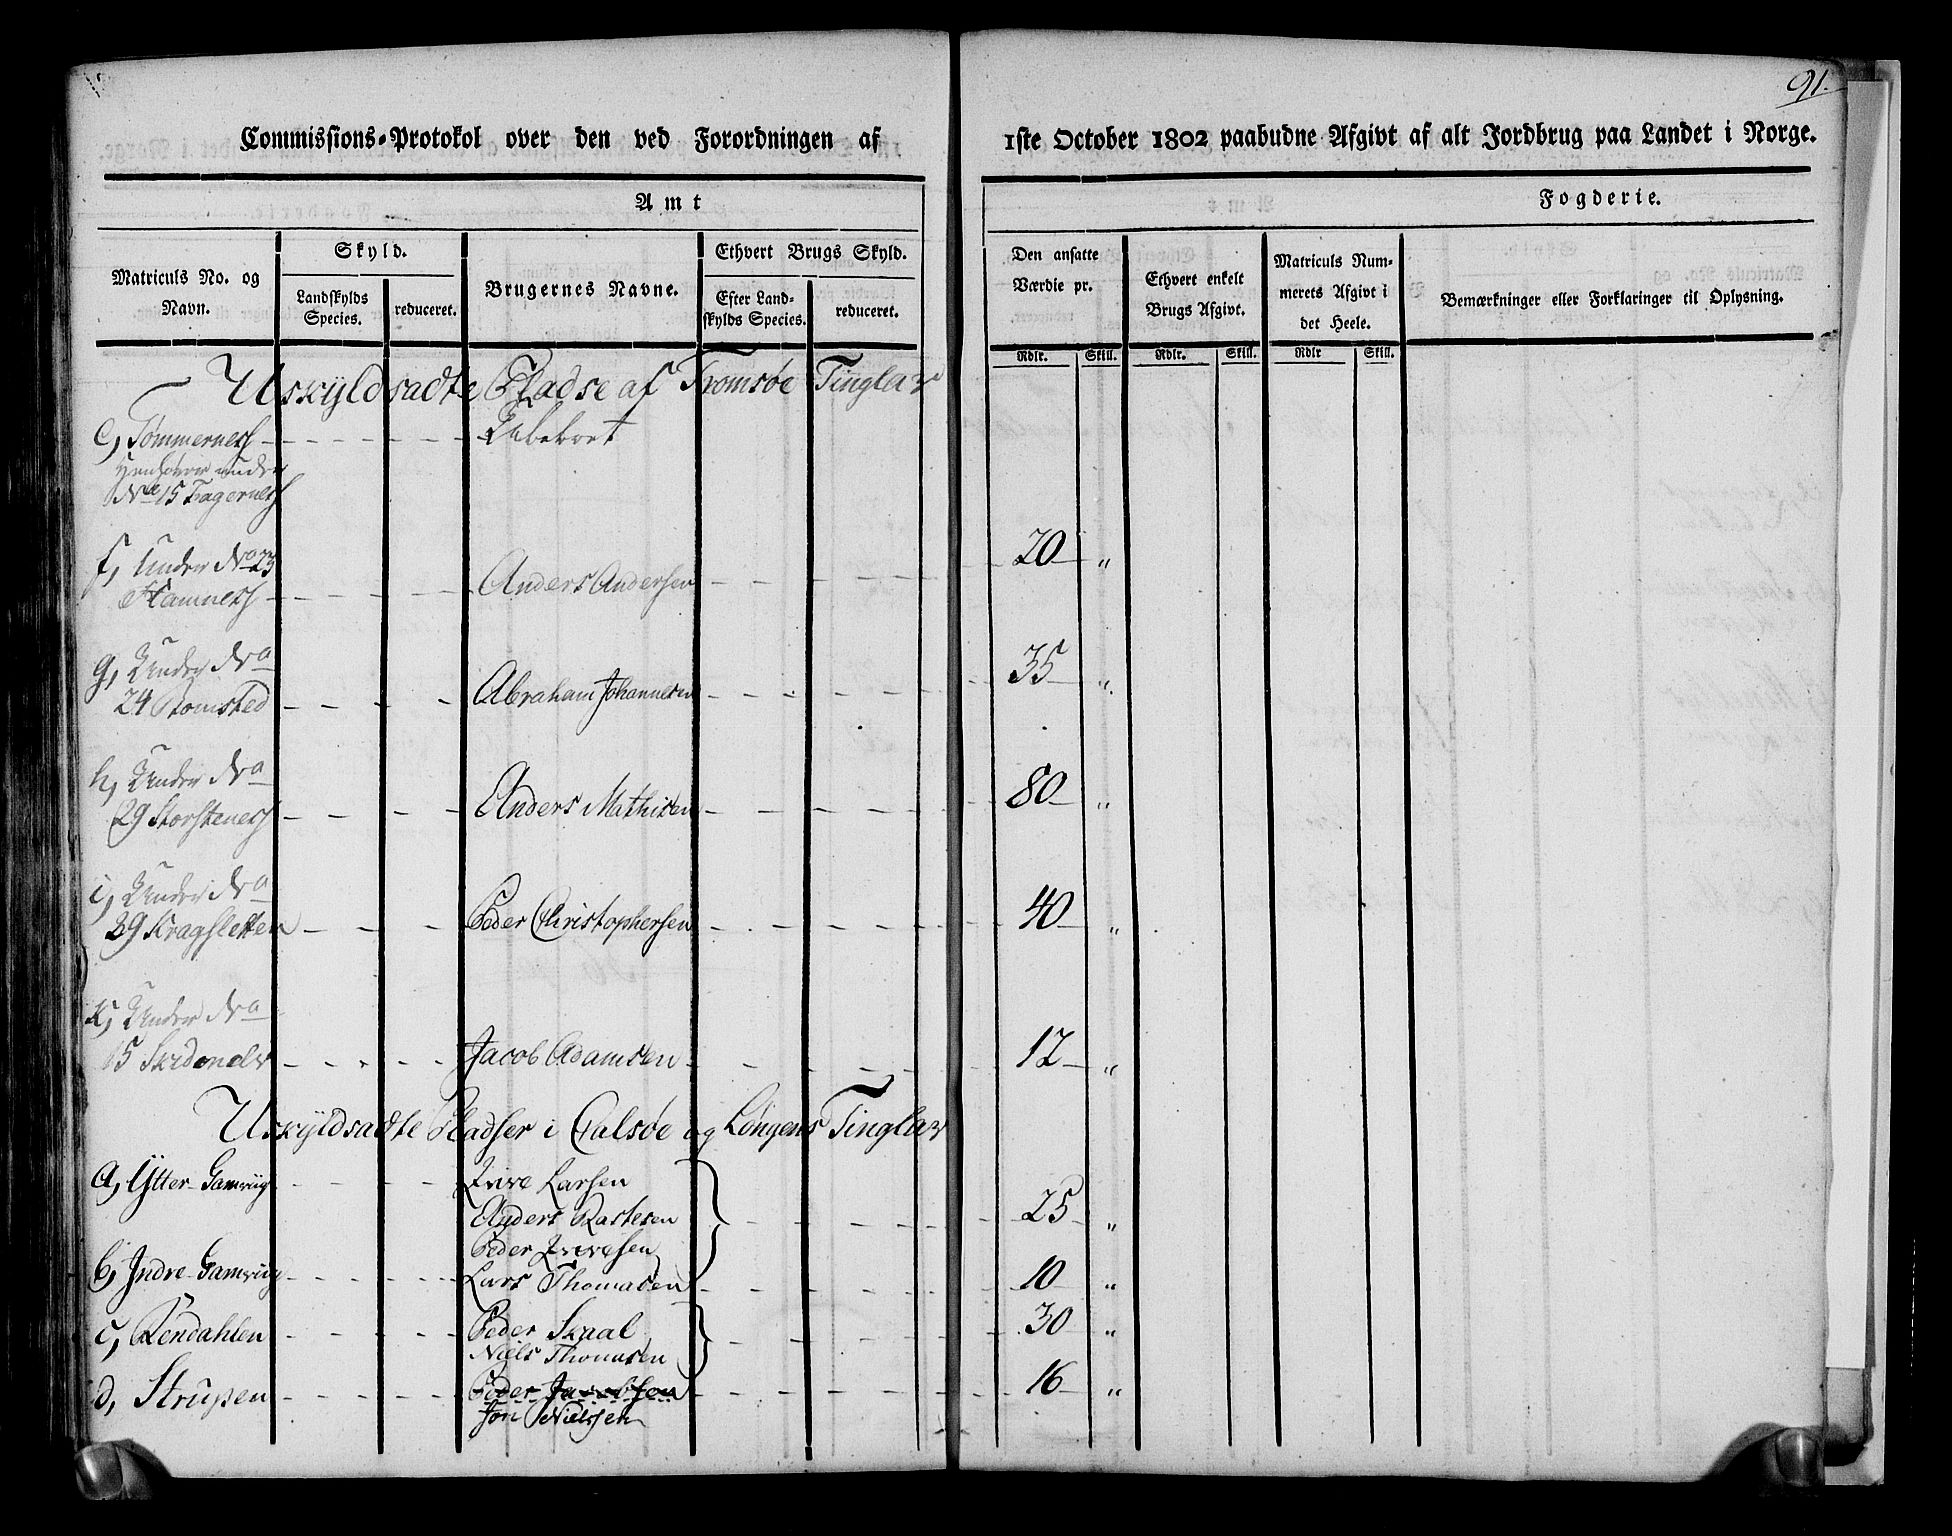 91.
Commissions-Protokol over den ved Forordningen af 1ste October 1802 paabudne Afgivt af alt Jordbrug paa Landet i Norge.
Amt
Fogderie.
Matriculs No. og Navn.
Skyld.
Landskylds Species.
reduceret.
Brugernes Navne.
Ethvert Brugs Skyld.
Efter Landskylds Species.
reduceret.
Den ansatte Værdie pr.
Ethvert enkelt Brugs Afgivt.
Matriculs Nummerets Afgivt i det Heele.
Bemærkninger eller Forklaringer til Oplysning.
Rdlr. Skill. Rdlr. Skill. Rdlr Skill.
Uskyldsadte Pladse af Tromsøe Tinglav
e, Tømmerness - - - - - Ubeboet
Henhører under
No 15 Fagerness
f, Under No 23 20 "
Hamness - - - - Anders Andersen - - - -
g, Under No 35 "
24 Romsted - - - Abraham Johannesen - - - -
h, Under No 80 "
29 Storsteness - - - Anders Mathisen - - - -
i, Under No 40 "
29 Kragsletten - - - Peder Christophersen - - - -
K, Under No
15 Skidonelv - - - - Jacob Adamsen - - - - 12 "
Uskyldsadte Pladser i Calsøe og Løngens Tinglav
a, Ytter-Gamviig - - - Iver Larsen
Anders Rastesen - - - - 25 "
Peder Iversen
b, Indre-Gamviig - - - - Lars Thomasen - - - - 10 "
c, Rendahlen - - - - Peder Skaal - - - - 30 "
Niels Thomasen
d, Strupen - - - - Peder Jacobsen - - - - 16 "
Jon Nielssen